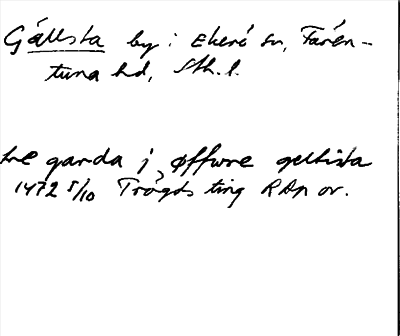 Gällsta by: Ekerö sn, Fären-
tuna hd, Sth. l.
tre garda j øffwre gelhista
1472 5/10 Trögds ting RAp or.